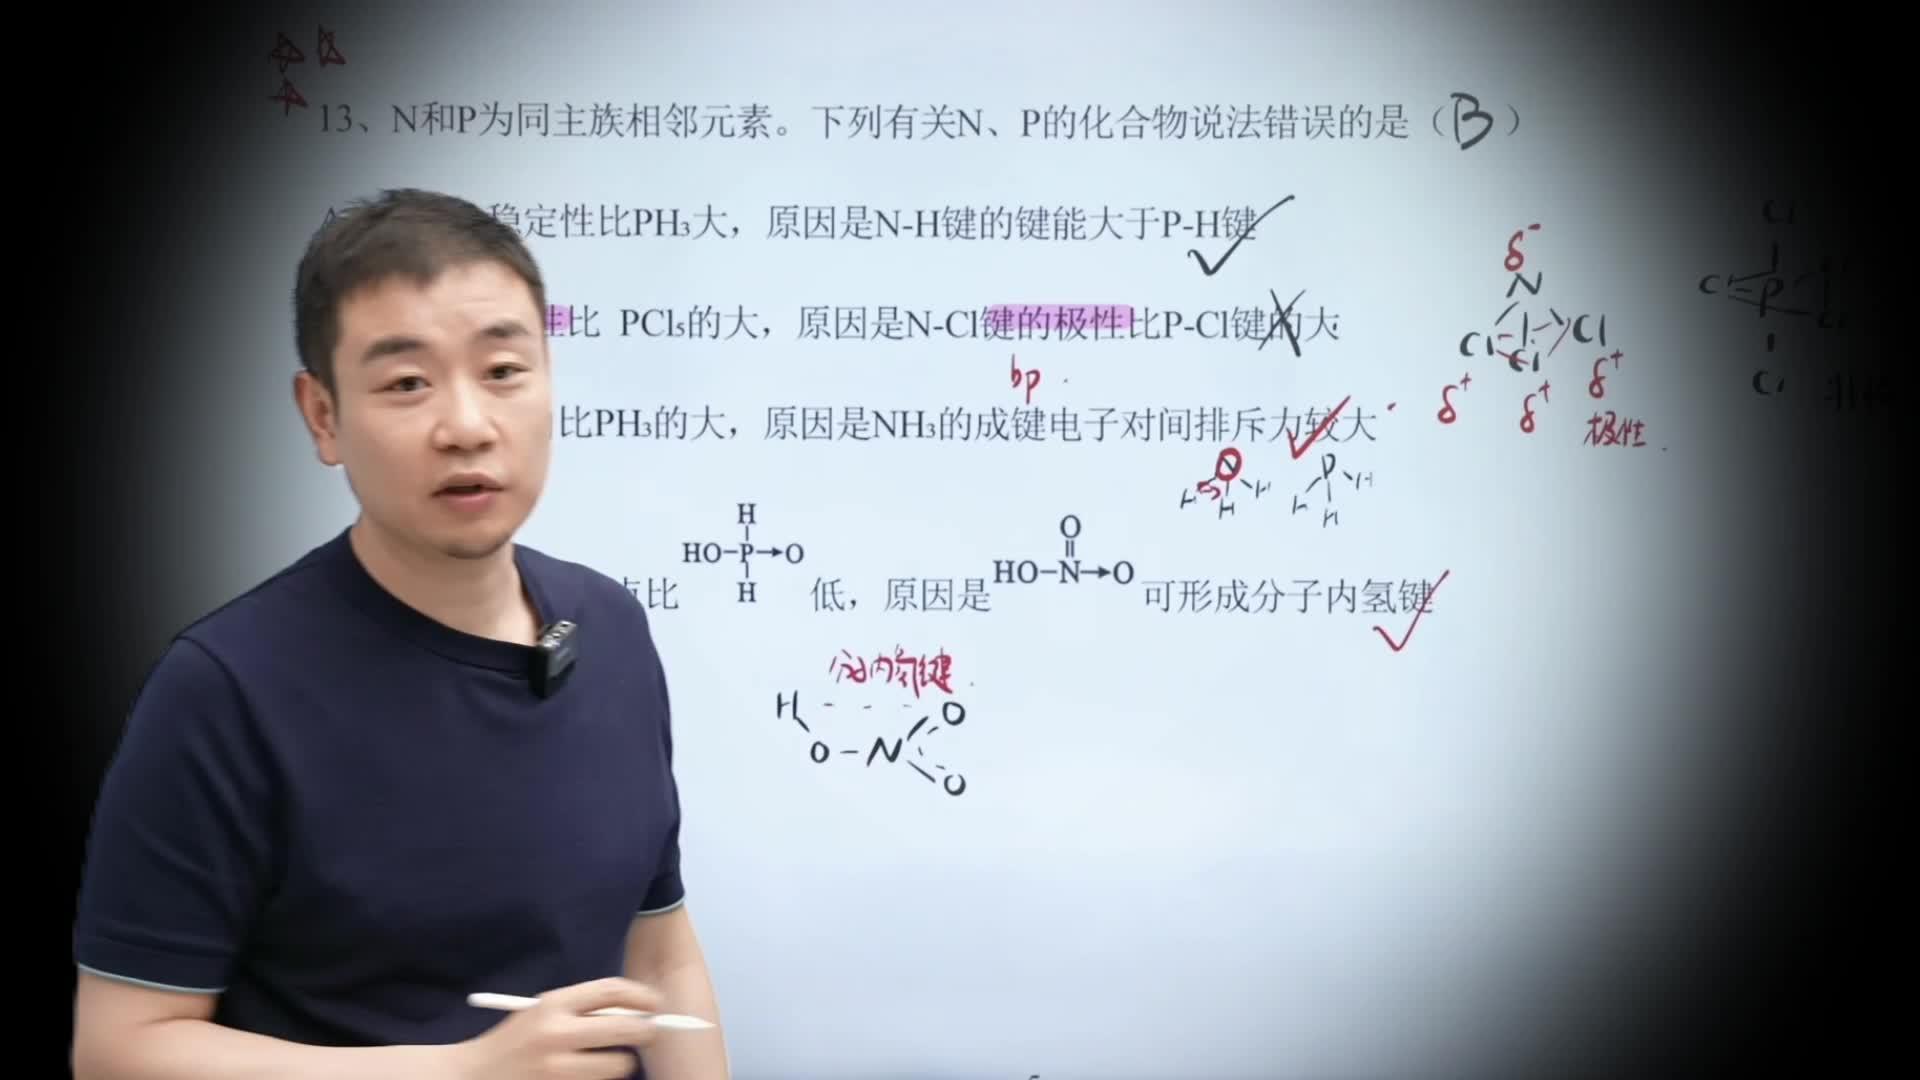 13、N和P为同主族相邻元素。下列有关N、P的化合物说法错误的是（B）
稳定性比PH₃大，原因是N-H键的键能大于P-H键
性比 PCl₅的大，原因是N-Cl键的极性比P-Cl键的大
bp
比PH₃的大，原因是NH₃的成键电子对间排斥力较大
H
HO-P→O
H
比
低，原因是
O
HO-N→O
可形成分子内氢键
分子内氢键
H O
O - N
O
δ⁻
N
Cl Cl Cl
δ⁺ δ⁺ δ⁺
极性
N
H H H
P
H H H
Cl
Cl P
Cl
Cl